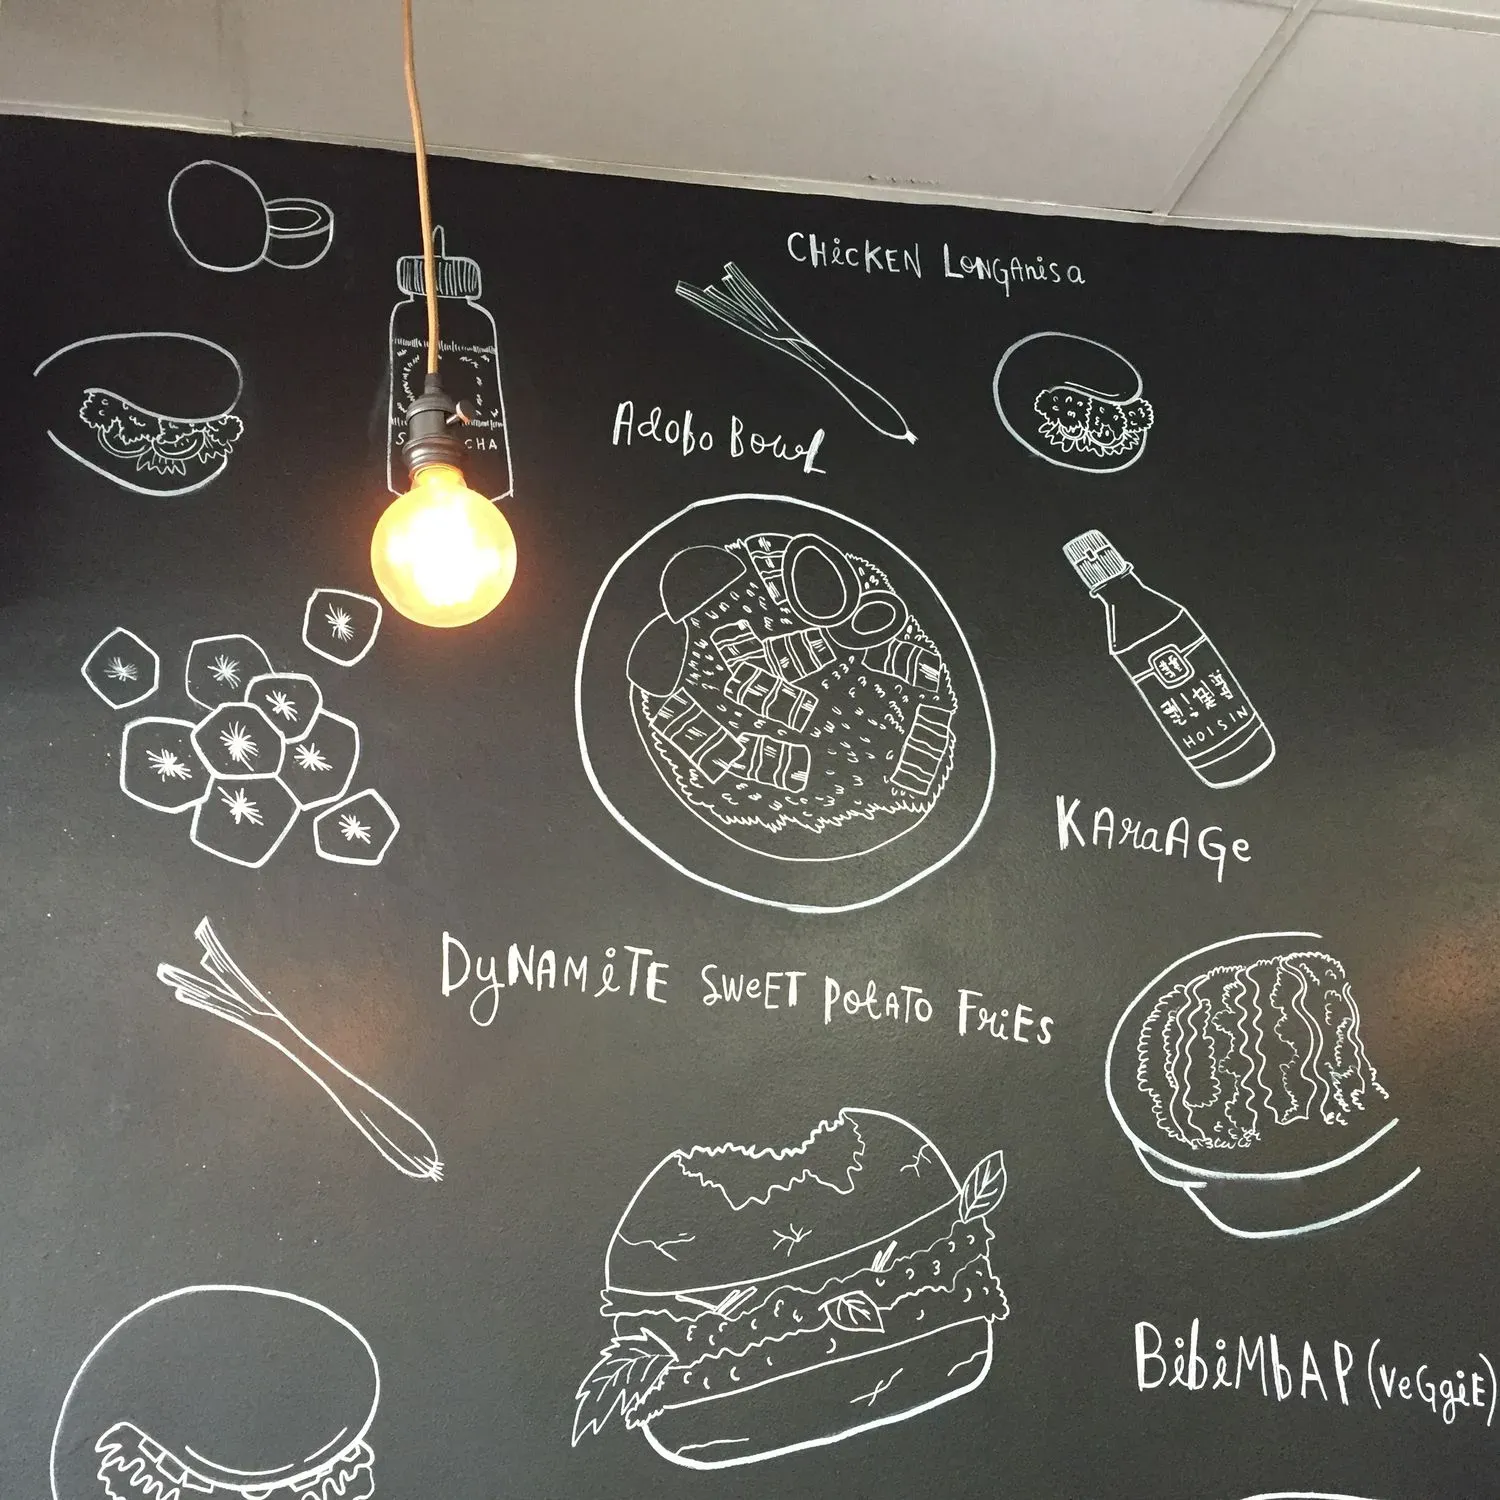 CHiCKEN LONGANisa
Adobo BowL
HOISIN
KAraAGe
DyNAMiTE SWeET PotATO FriEs
BibiMbAP (VeGgiE)